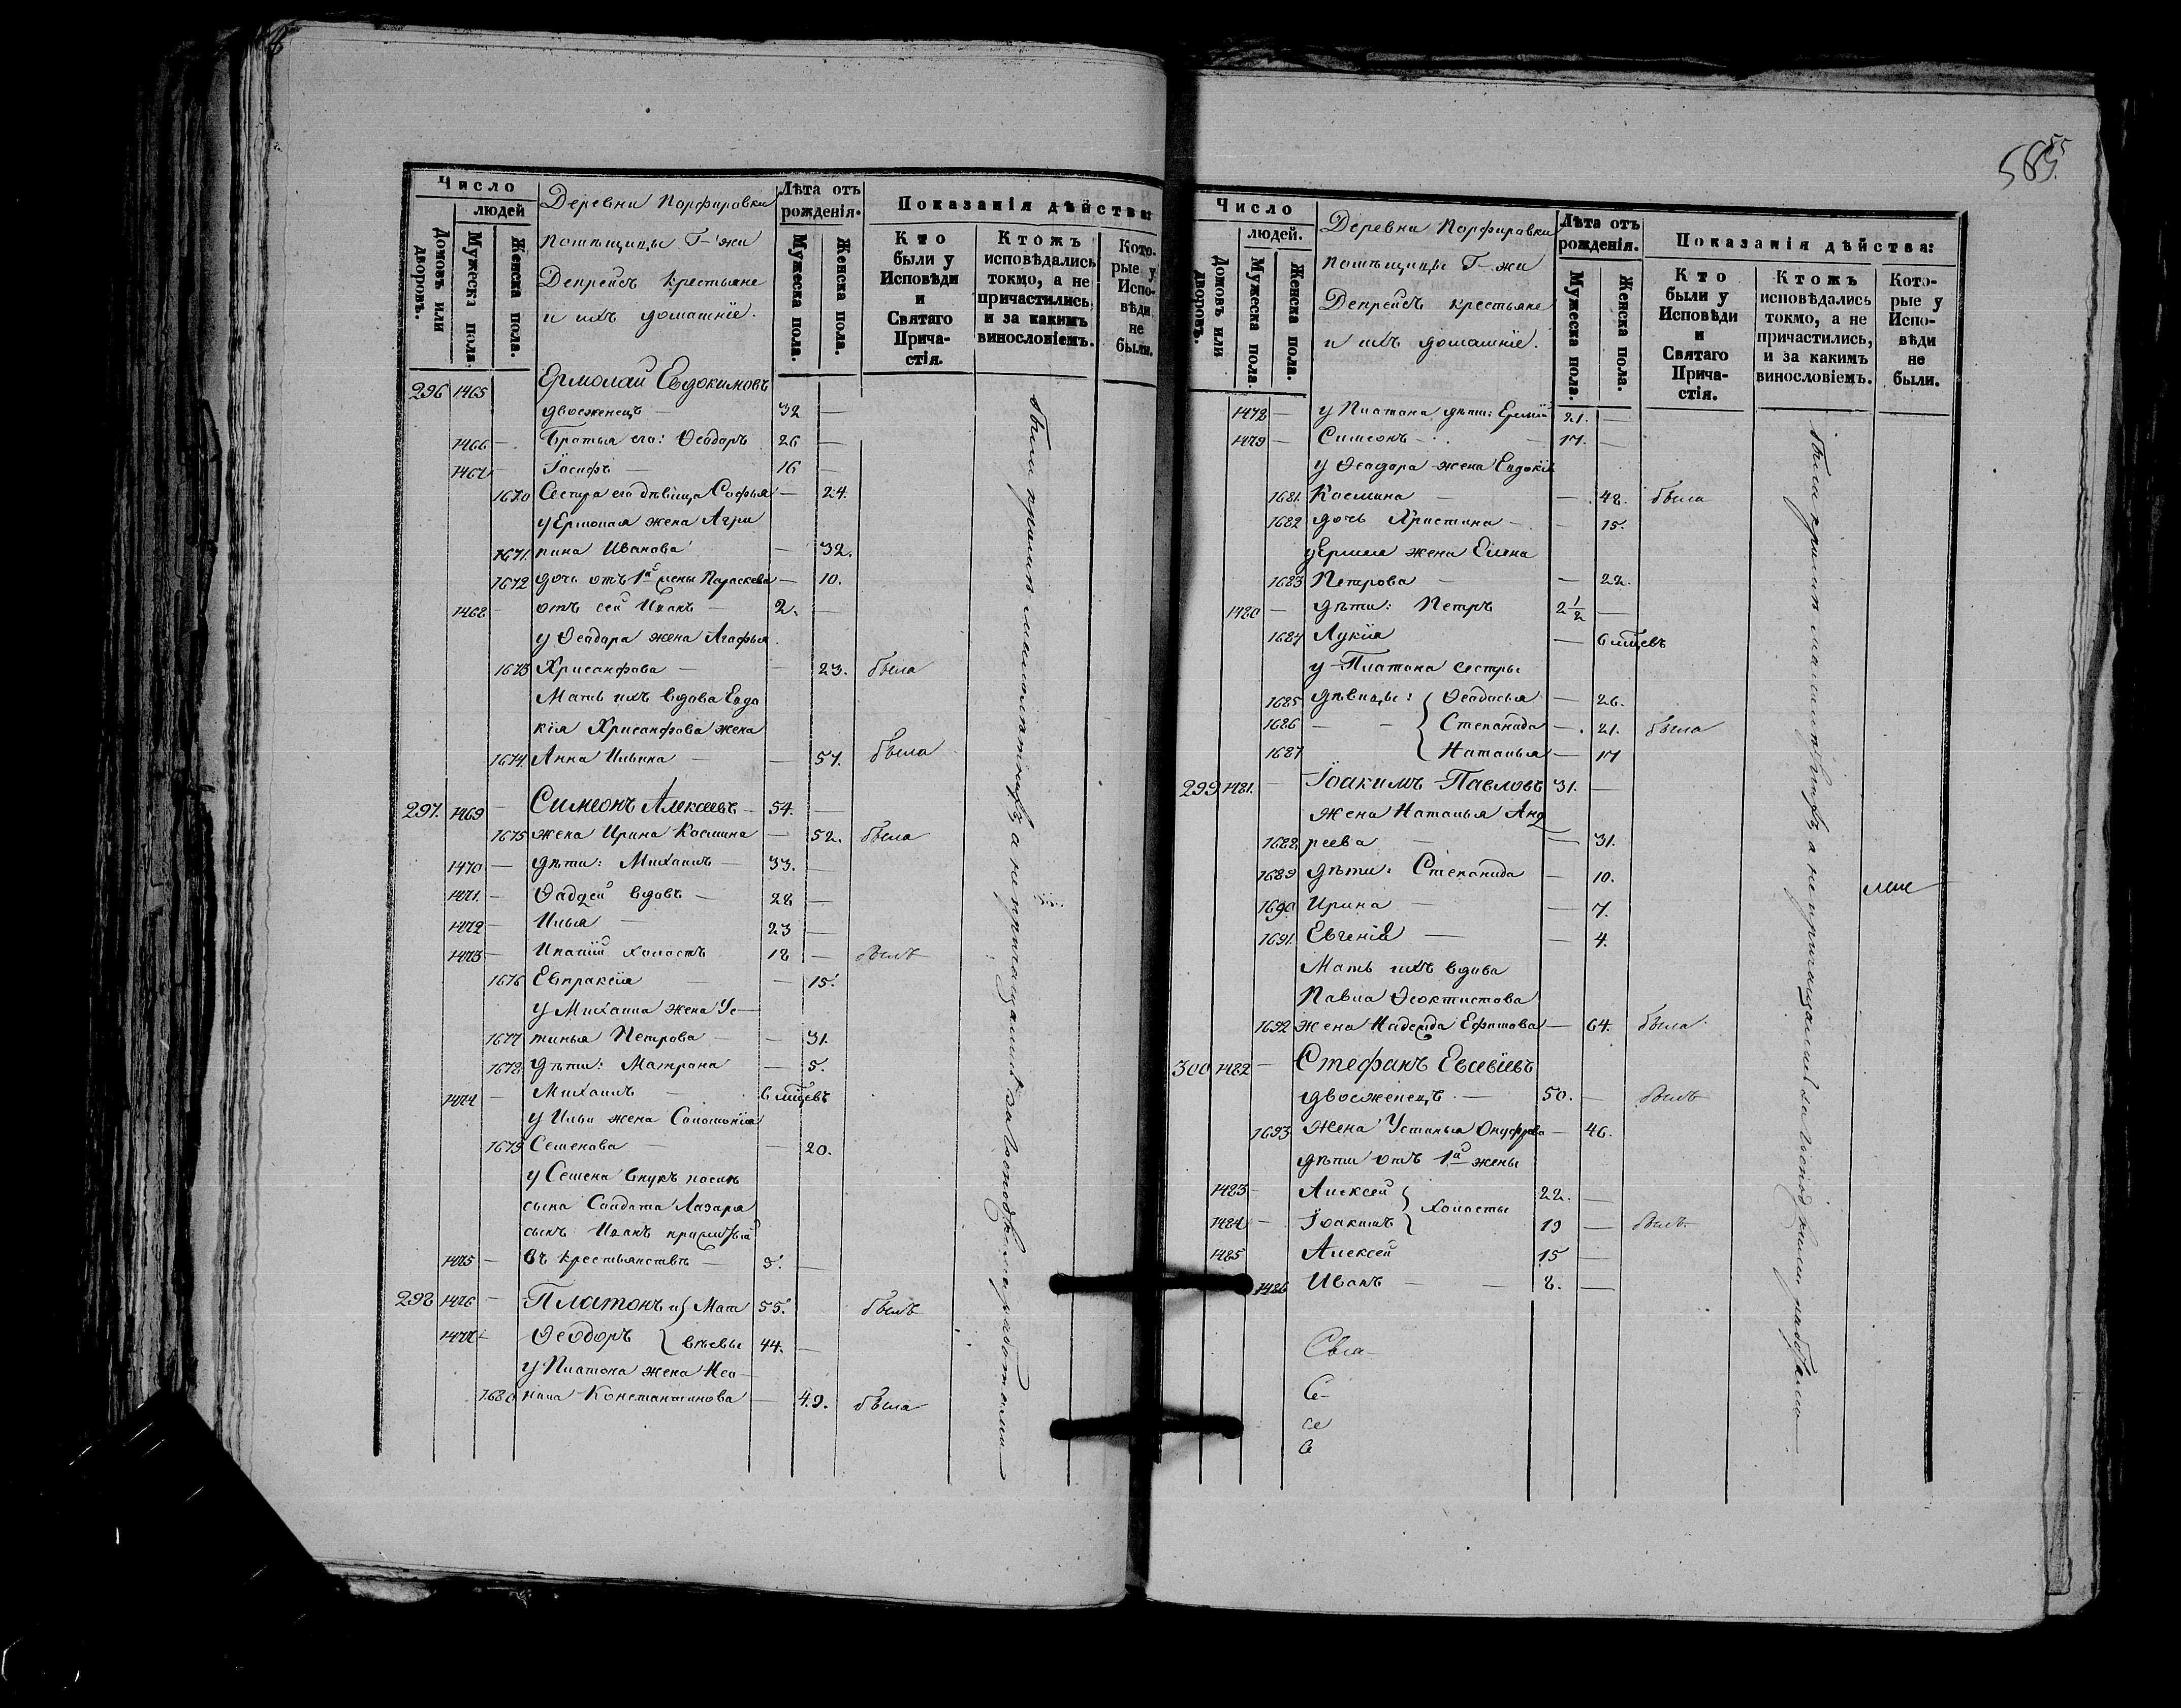 585
85
Число
людей
Домовъ или дворовъ.
Мужеска пола
Женска пола.
Деревни Порфировки
помѣщицы Г-жи
Депрейсъ крестьяне
и ихъ домашніе.
Лѣта отъ рожденія.
Мужеска пола.
Женска пола.
Показанія дѣйства:
Кто были у Исповѣди и Святаго Причастія.
Ктожъ исповѣдались токмо, а не причастились, и за какимъ винословіемъ.
Которые у Исповѣди не были.
296 1465 Ермолай Евдокимовъ
двоеженецъ — 32 —
1466 — Братья его: Ѳеодоръ 26 —
1467 — Іосифъ — 16 —
1670 Сестра его дѣвица Софья — 24.
у Ермолая жена Агри
1671. пина Иванова — 32.
1672 дочь отъ 1й жены Параскева — 10.
1468 — отъ сей Иванъ — 2. —
у Ѳеодора жена Агафья
1673 Хрисанфова — — 23. была
Мать ихъ вдова Евдо
кія Хрисанфова жена
1674. Анна Ильина — — 57. была
297. 1469 — Симеонъ Алексеевъ — 54. —
1675 жена Ирина Космина — 52. была
1470 — дѣти: Михаилъ — 33. —
1471. — Ѳаддей вдовъ — 28 —
1472 — Илья — 23 —
1473 — Ипатій холостъ 18 — былъ
1676 Евпраксія — — 15.
у Михаила жена Ус—
1677 тинья Петрова — — 31.
1678 дѣти: Матрона — 5.
1474 — Михаилъ — 6 мцевъ
у Ильи жена Соломонія
1679 Семенова — — 20.
у Семена внукъ послѣ
сына Солдата Лазаря
сынъ Иванъ
1475 — въ крестьянствѣ — 9. —
298 1476 — Платонъ и } Мат 55. былъ
1477 — Ѳеодоръ { вѣевы 44. —
у Платона жена Неo—
1680 нила Константинова — 49. была
были прошлъ а не причащались за господскими работами
Число
людей.
Домовъ или дворовъ.
Мужеска пола.
Женска пола.
Деревни Порфировки
помѣщицы Г-жи
Депрейсъ крестьяне
и ихъ домашніе.
Лѣта отъ рожденія.
Мужеска пола.
Женска пола.
Показанія дѣйства:
Кто были у Исповѣди и Святаго Причастія.
Ктожъ исповѣдались токмо, а не причастились, и за какимъ винословіемъ.
Которые у Исповѣди не были.
1478 — у Платона дѣти: Ермій 21. —
1479 — Симеонъ — 17. —
у Ѳеодора жена Евдокія
1681. Космина — — 48. была
1682 дочь Христина — — 15.
у Ермія жена Елена
1683 Петрова — — 22.
1480 — дѣти: Петръ 2 1/2 —
1684 Лукія — 6 мцевъ
у Платона сестры
1685 дѣвицы: { Ѳеодосья — 26.
1686 — — { Степанида — 21. была
1687 { Наталья — 17
299 1481. — Іоакимъ Павловъ 31. —
жена Наталья Анд
1688 реева — — 31.
1689 дѣти: Степанида — 10.
1690 Ирина — — 7.
1691. Евгенія — — 4.
Мать ихъ вдова
Павла Ѳеоктистова
1692 жена Надежда Ефимова — 64. была
300 1482 — Стефанъ Евсевіевъ
двоеженецъ — 50. — былъ
1693 Жена Устинья Онуфрева — 46.
дѣти отъ 1й жены
1483 — Алексей } холосты 22. —
1484 — Іоакимъ } 19 — былъ
1485 Алексей 15 —
1486 Иванъ — — 8. —
а не причащались за господскими работами